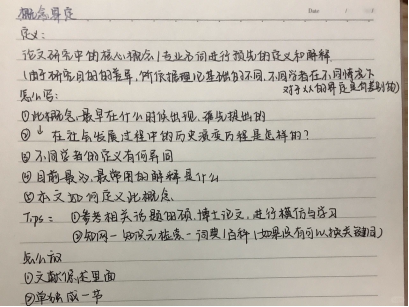 概念界定
Date
定义:
论文研究中的核心概念/专业名词进行预先的定义和解释
(由于研究目的的差异, 所依据理论基础的不同, 不同学者在不同情况下
对于从的界定是有差别的)
怎么写:
①此概念最早在什么时候出现、谁先提出的
② ↓ 在社会发展过程中的历史演变历程是怎样的?
③不同学者的定义有何异同
④目前最公、最常用的解释是什么
⑤本文如何定义此概念
Tips: ①参考相关话题的硕、博士论文, 进行模仿与学习
②知网—知识元检索—词典/百科(如果没有可以换关键词)
怎么放
①文献综述里面
②单独成一节